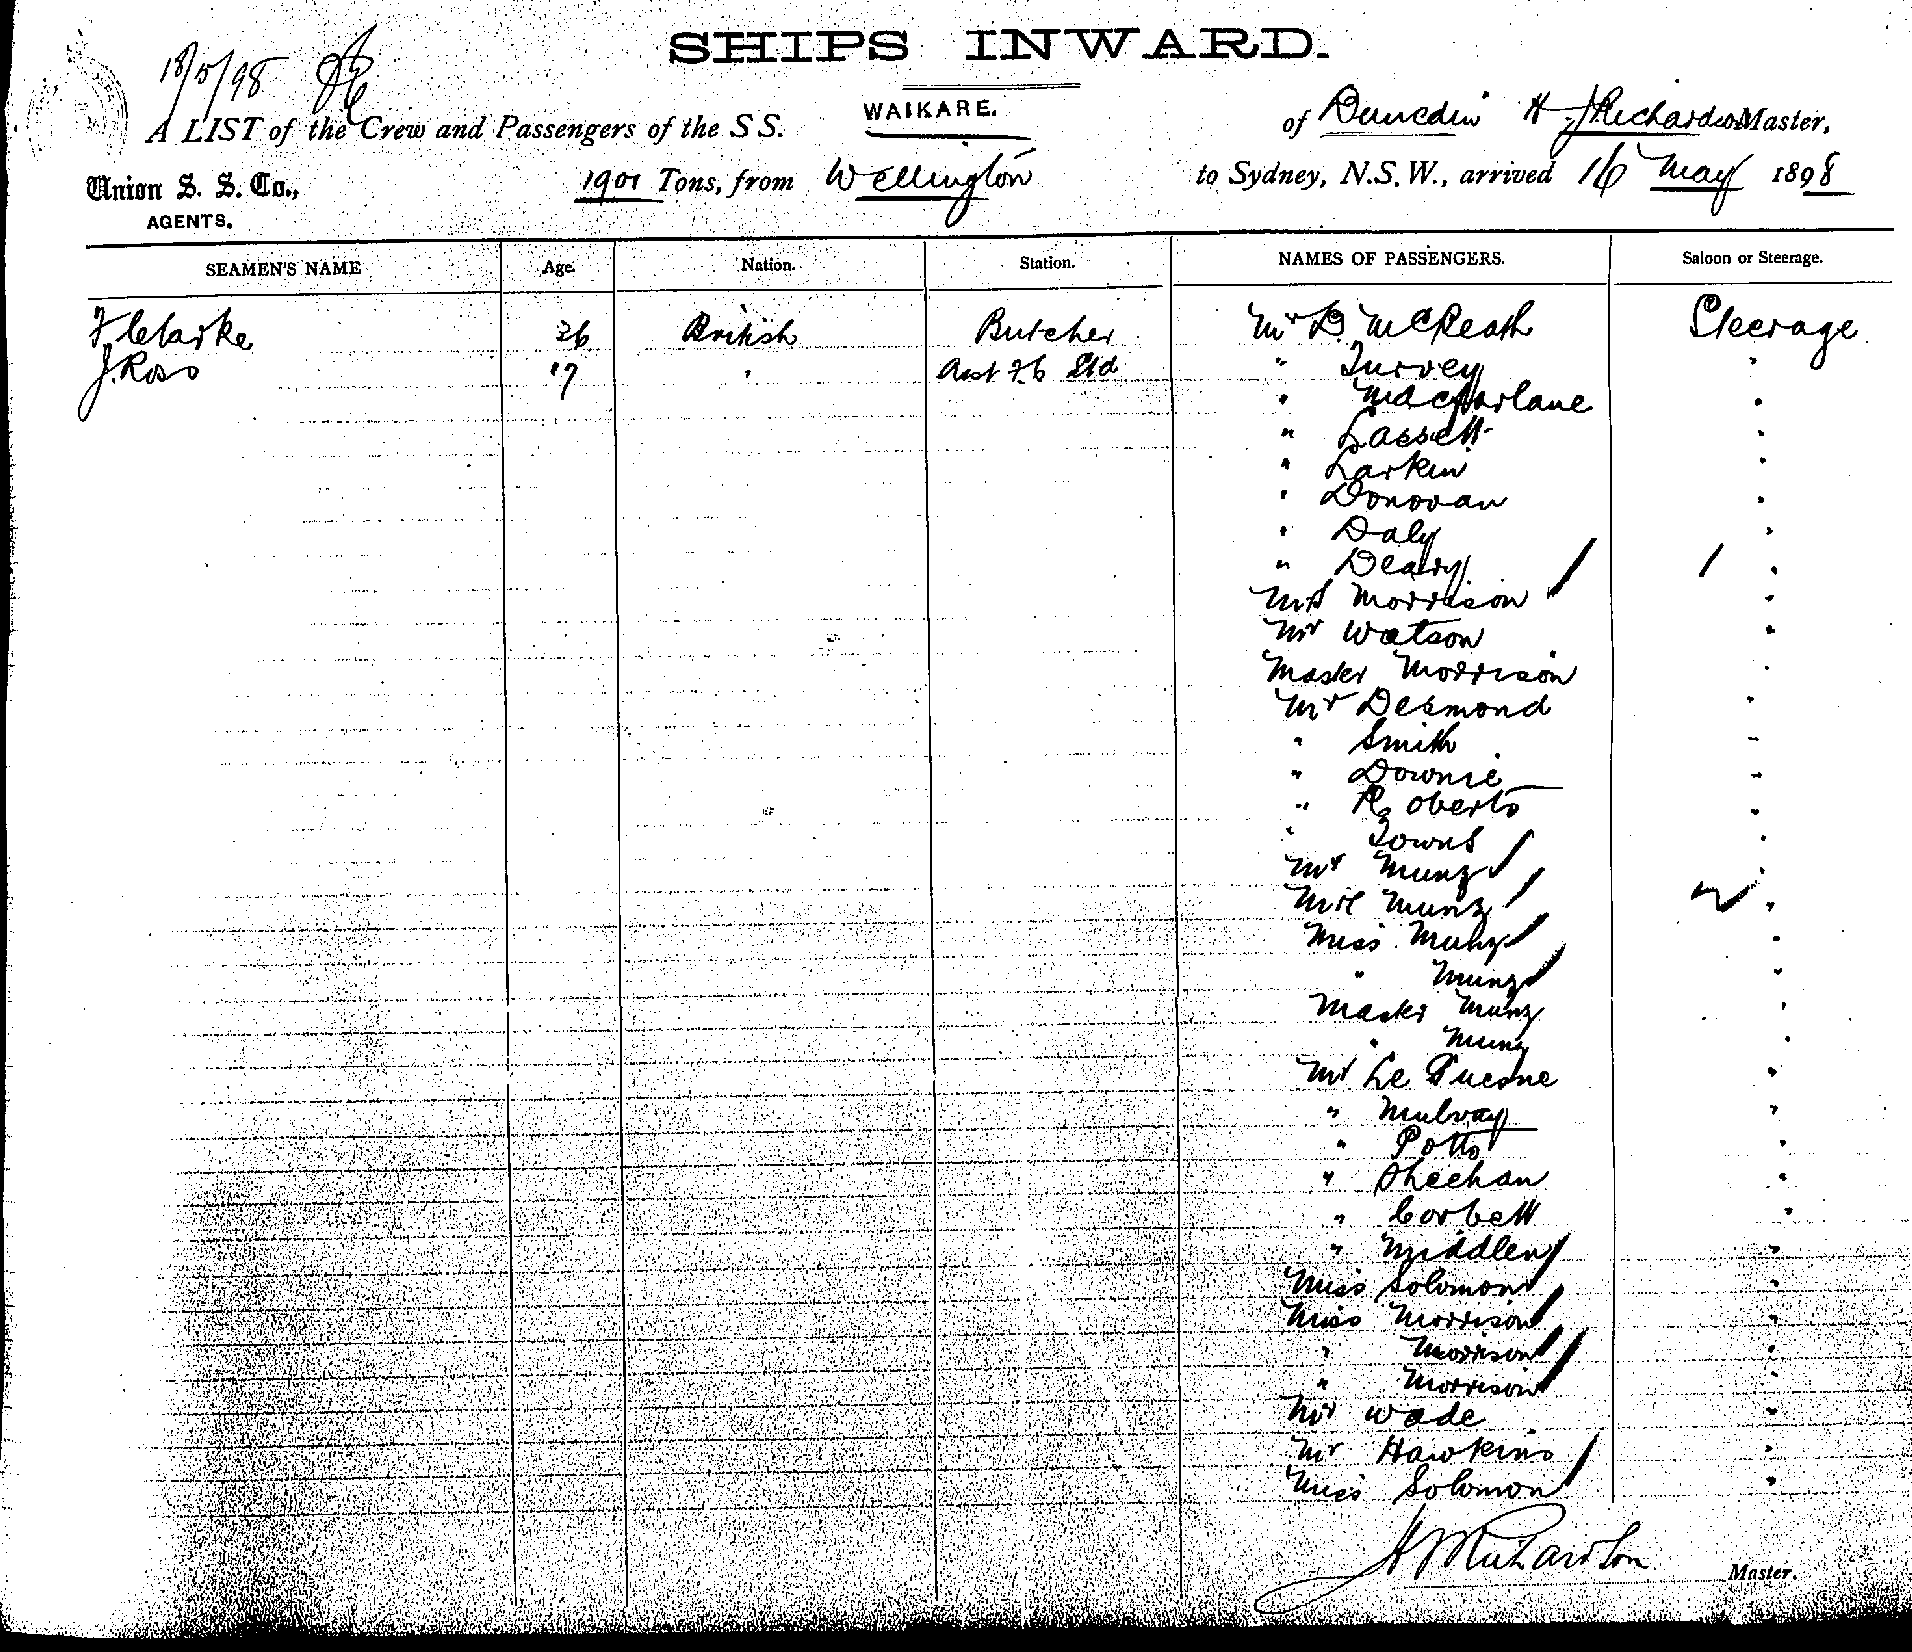 SHIPS INWARD.
18/5/98
A LIST of the Crew and Passengers of the S S. WAIKARE. of Dunedin H J Richardson Master,
Union S. S. Co.,
AGENTS.
1901 Tons, from Wellington to Sydney, N.S.W., arrived 16 May 1898
SEAMEN'S NAME Age. Nation. Station. NAMES OF PASSENGERS. Saloon or Steerage.
F Clarke 26 British Butcher Mr D. McReath Steerage
J. Ross 17 " " Turvey "
" Macfarlane "
" Lassett "
" Larkin "
" Donovan "
" Daly "
" Deary "
Mrs Morrison "
Mr Watson "
Master Morrison "
Mr Desmond "
" Smith "
" Downie "
" Roberts "
" Towns "
Mr Munz "
Mrs Munz "
Miss Munz "
" Munz "
Master Munz "
" Munz "
Mr Le Quesne "
" Mulvay "
" Potts "
" Sheehan "
" Corbett "
" Middlen "
Miss Solomon "
Miss Morrison "
" Morrison "
" Morrison "
Mr Wade "
Mr Hawkins "
Miss Solomon "
H J Richardson Master.